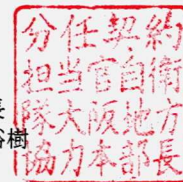 分任契約
担当官自衛
隊大阪地方
協力本部長
長
裕樹